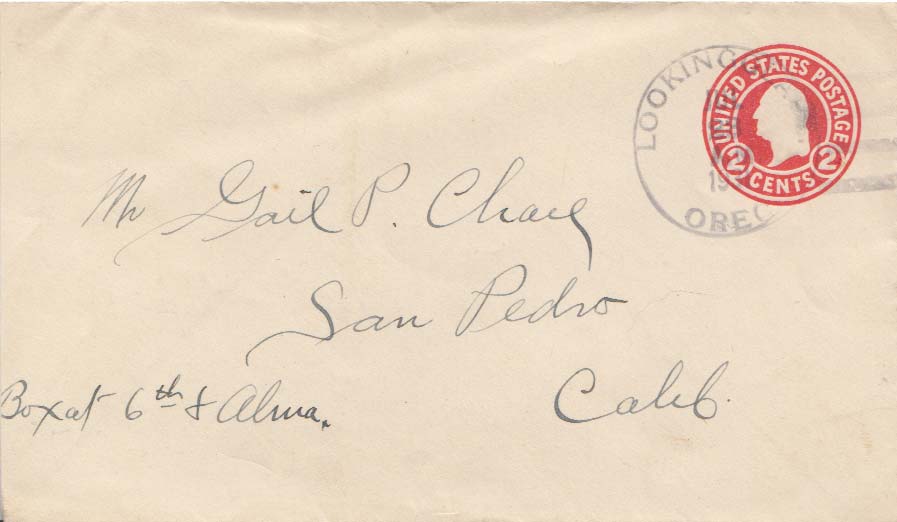 LOOKING
OREG
19
UNITED STATES POSTAGE
2 CENTS 2
Mr Gail P.
San Pedro
Calif.
Box at 6th & Alma.